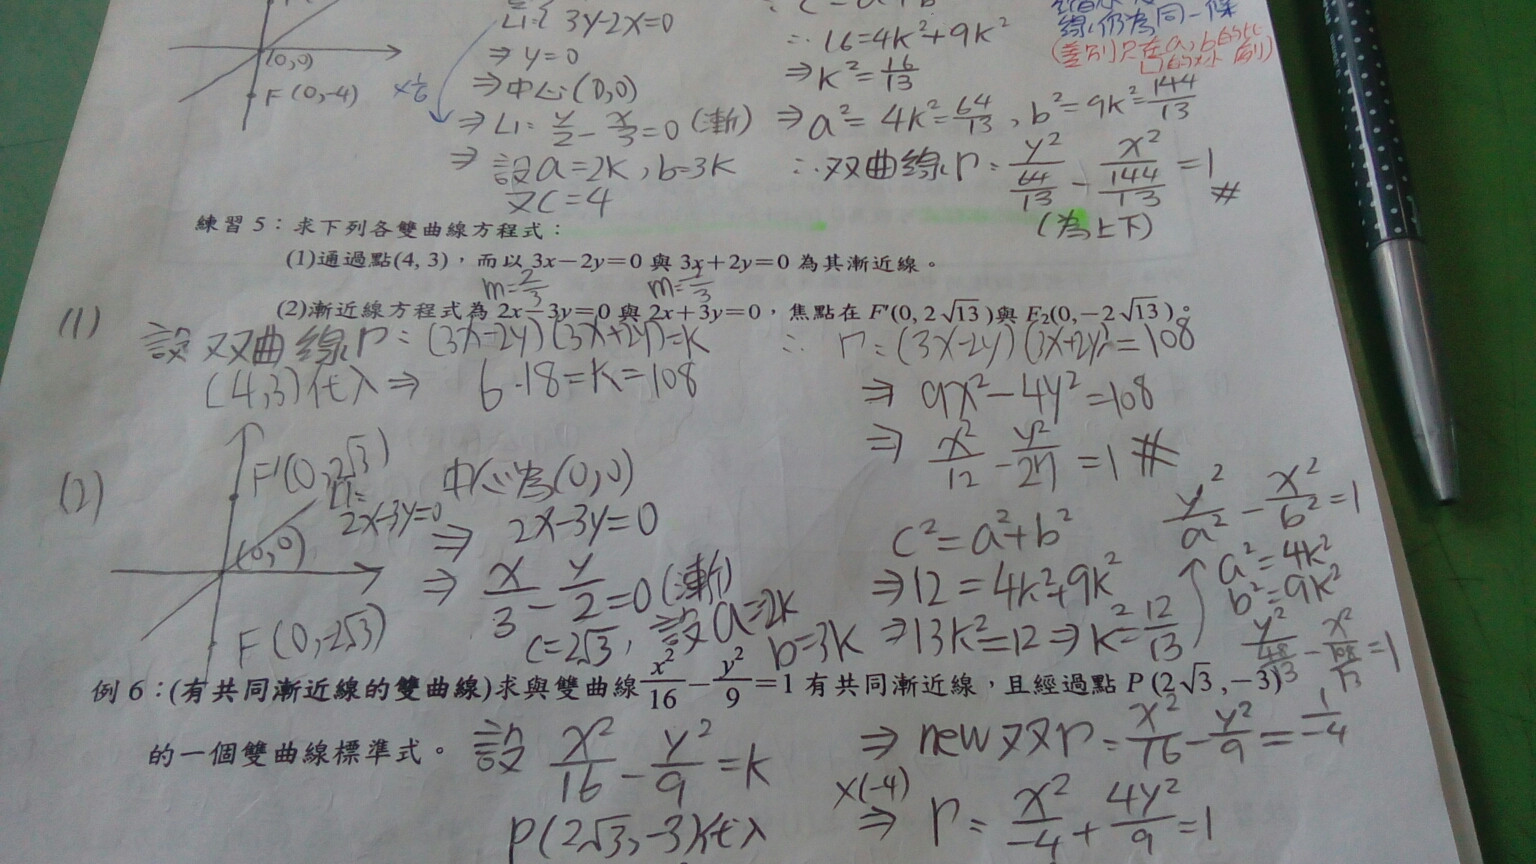 (0,0)
F (0,-4)
3y-2x=0
⇒ y=0
⇒中心(0,0)
×1/6
⇒ L1= y/2 - x/3 = 0 (漸)
⇒ 設a=2k, b=3k
又c=4
∴ 16=4k²+9k²
⇒ k²=16/13
⇒ a²= 4k²=64/13, b²= 9k²=144/13
∴双曲線Γ= y²/(64/13) - x²/(144/13) =1 #
(為上下)
線,仍為同一條
練習 5:求下列各雙曲線方程式:
(1)通過點(4, 3),而以 3x-2y=0 與 3x+2y=0 為其漸近線。
m=2/3
(2)漸近線方程式為 2x-3y=0 與 2x+3y=0,焦點在 F'(0, 2√13)與 F₂(0,-2√13)。
(1)
設双曲線Γ: (3x-2y)(3x+2y)=k
(4,3)代入⇒ 6·18=k=108
∴ Γ=(3x-2y)(3x+2y)=108
⇒ 9x²-4y²=108
⇒ x²/12 - y²/27 =1 #
(2)
F'(0,2√3)
L1=
2x-3y=0
(0,0)
F (0,-2√3)
中心為(0,0)
⇒ 2x-3y=0
⇒ x/3 - y/2 =0 (漸)
c=2√3, 設a=2k
b=3k
c²=a²+b²
⇒12=4k²+9k²
⇒13k²=12⇒k²=12/13
y²/a² - x²/b² =1
a²=4k²
b²=9k²
y²/(48/13) - x²/(108/13) =1
例 6:(有共同漸近線的雙曲線)求與雙曲線 x²/16 - y²/9 =1 有共同漸近線,且經過點 P (2√3,-3)
的一個雙曲線標準式。
設 x²/16 - y²/9 =k
P(2√3,-3)代入
⇒ new 双Γ= x²/16 - y²/9 = 1/-4
×(-4)
⇒ Γ= x²/-4 + 4y²/9 =1